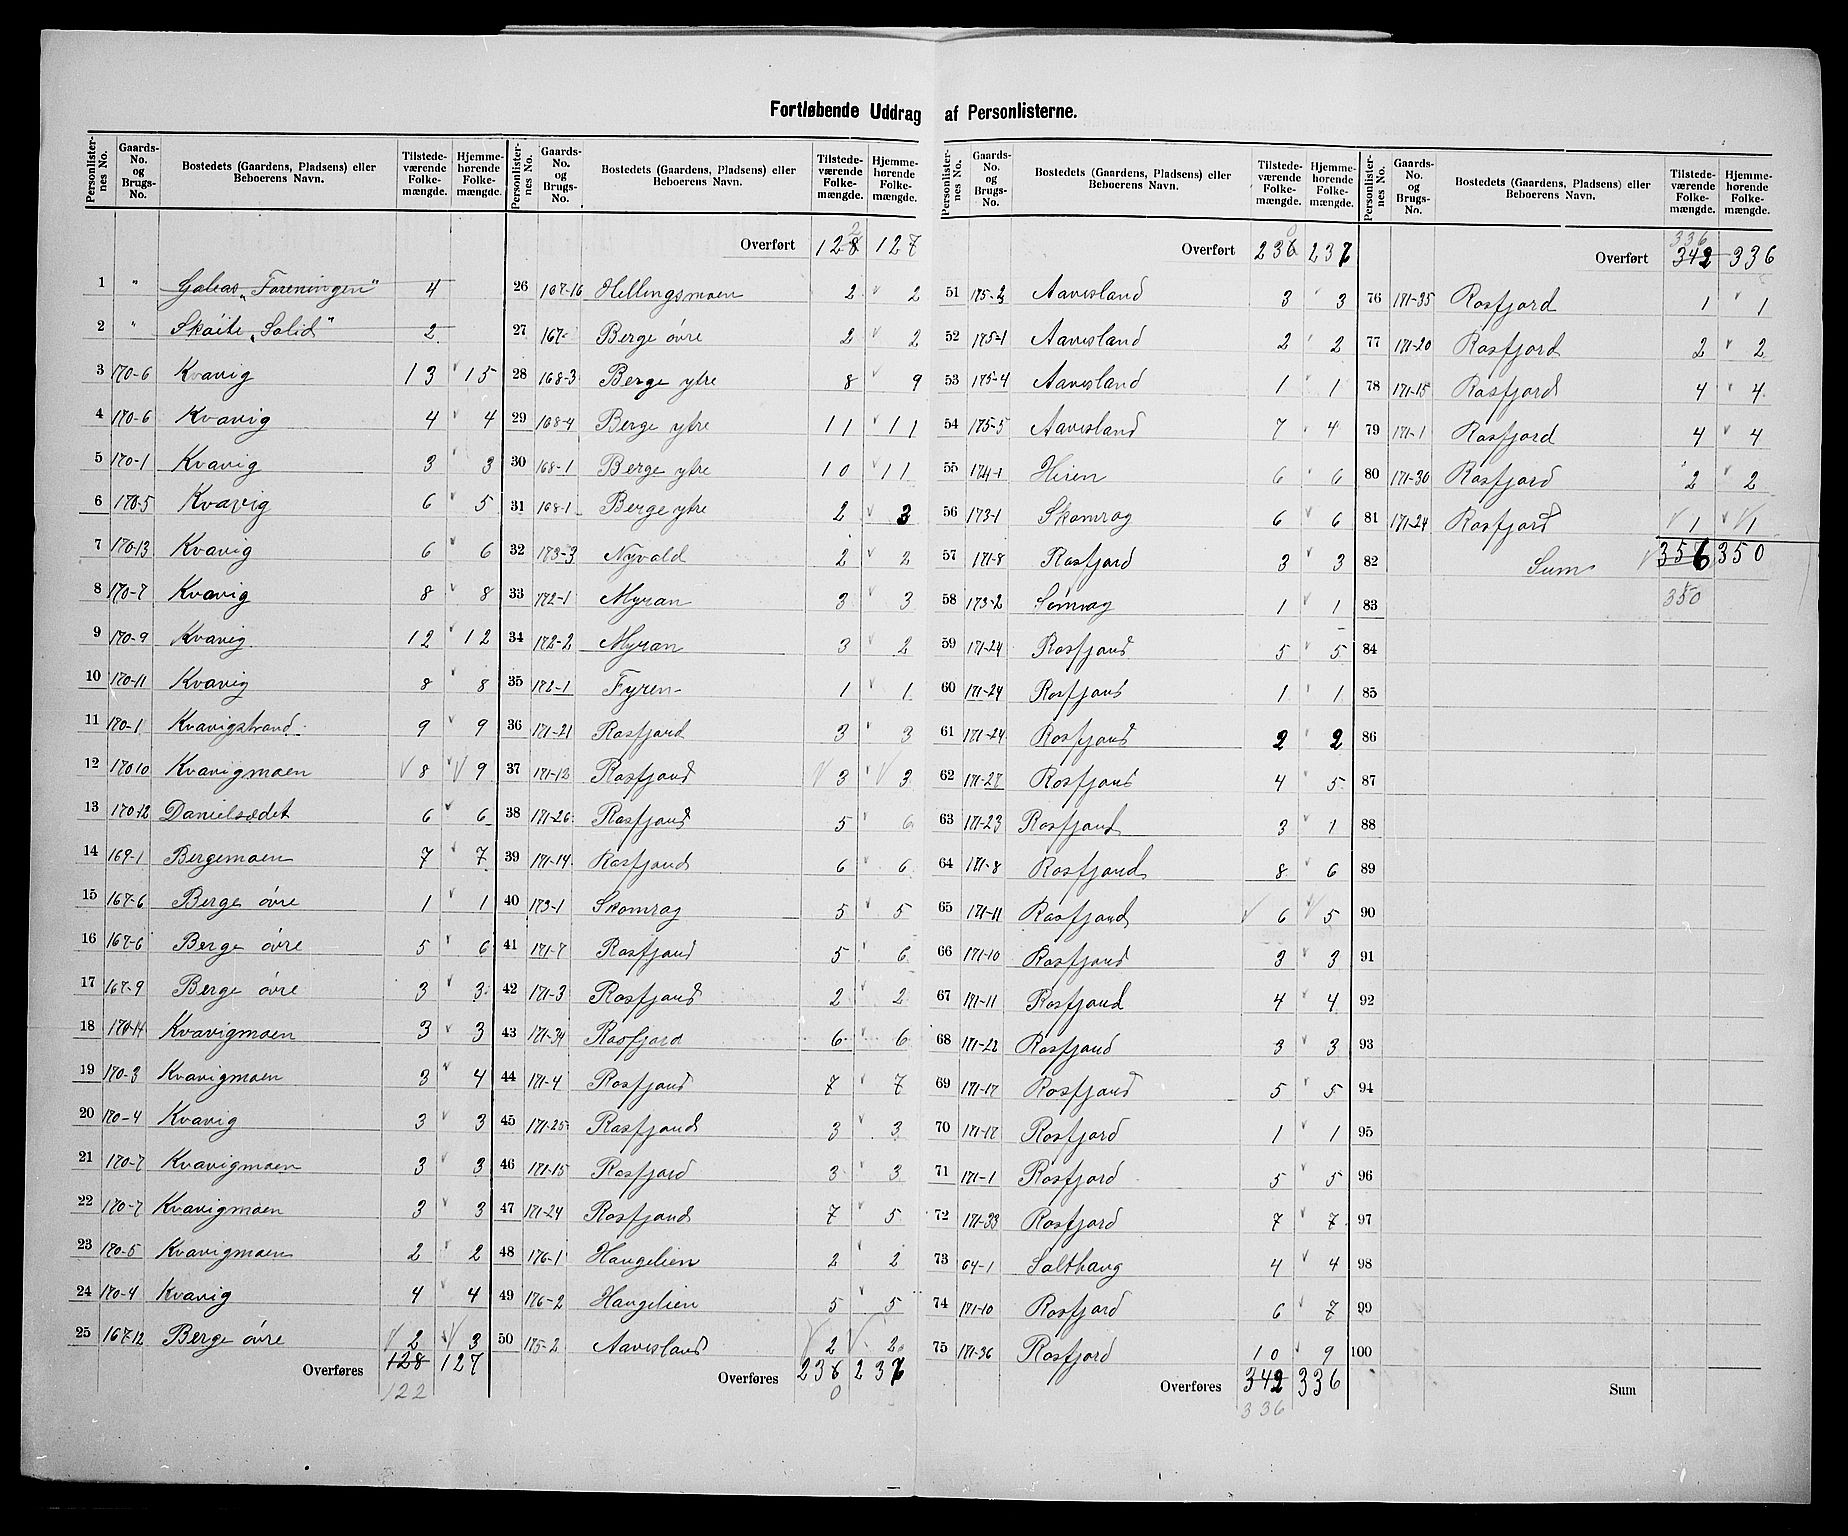 Fortløbende Uddrag af Personlisterne.
Personlister-nes No. Gaards-No. og Brugs-No. Bostedets (Gaardens, Pladsens) eller Beboerens Navn. Tilstede-værende Folke-mængde. Hjemme-hørende Folke-mængde.
1 " Galeas "Foreningen" 4
2 " Skøite "Solid" 2
3 170-6 Kvavig 13 15
4 170-6 Kvavig 4 4
5 170-1 Kvavig 3 3
6 170-5 Kvavig 6 5
7 170-13 Kvavig 6 6
8 170-7 Kvavig 8 8
9 170-9 Kvavig 12 12
10 170-11 Kvavig 8 8
11 170-1 Kvavigstrand 9 9
12 170 10 Kvavigmoen 8 9
13 170-12 Danielsædet 6 6
14 169-1 Bergemoen 7 7
15 167-6 Berge øvre 1 1
16 167-6 Berge øvre 5 6
17 167-9 Berge øvre 3 3
18 170-14 Kvavigmoen 3 3
19 170-3 Kvavigmoen 3 4
20 170-4 Kvavig 3 3
21 170-7 Kvavigmoen 3 3
22 170-7 Kvavigmoen 3 3
23 170-5 Kvavigmoen 2 2
24 170-4 Kvavig 4 4
25 167-12 Berge øvre 2 3
Overføres 128 127
122
Personlister-nes No. Gaards-No. og Brugs-No. Bostedets (Gaardens, Pladsens) eller Beboerens Navn. Tilstede-værende Folke-mængde. Hjemme-hørende Folke-mængde.
2
Overført 128 127
26 167-16 Hellingsmoen 2 2
27 167- Berge øvre 2 2
28 168-3 Berge ytre 8 9
29 168-4 Berge ytre 11 11
30 168-1 Berge ytre 10 11
31 168-1 Berge ytre 2 3
32 173-3 Nyvold 2 2
33 172-1 Myran 3 3
34 172-2 Myran 3 2
35 172-1 Fyren 1 1
36 171-21 Rosfjord 3 3
37 171-12 Rosfjord 3 3
38 171-26 Rosfjord 5 6
39 171-14 Rosfjord 6 6
40 173-1 Skomrag 5 5
41 171-7 Rosfjord 5 6
42 171-3 Rosfjord 2 2
43 171-34 Rosfjord 6 6
44 171-4 Rosfjord 7 7
45 171-25 Rosfjord 3 3
46 171-15 Rosfjord 3 3
47 171-24 Rosfjord 7 5
48 176-1 Haugelien 2 2
49 176-2 Haugelien 5 5
50 175-2 Aavesland 2 2
Overføres 236 237
0
Personlister-nes No. Gaards-No. og Brugs-No. Bostedets (Gaardens, Pladsens) eller Beboerens Navn. Tilstede-værende Folke-mængde. Hjemme-hørende Folke-mængde.
0
Overført 236 237
51 175-2 Aavesland 3 3
52 175-1 Aavesland 2 2
53 175-4 Aavesland 1 1
54 175-5 Aavesland 7 4
55 174-1 Heien 6 6
56 173-1 Skomrag 6 6
57 171-8 Rosfjord 3 3
58 173-2 1 1
59 171-24 Rosfjord 5 5
60 171-24 Rosfjord 1 1
61 171-24 Rosfjord 2 2
62 171-27 Rosfjord 4 5
63 171-23 Rosfjord 3 1
64 171-8 Rosfjord 8 6
65 171-11 Rosfjord 6 5
66 171-10 Rosfjord 3 3
67 171-11 Rosfjord 4 4
68 171-22 Rosfjord 3 3
69 171-17 Rosfjord 5 5
70 171-17 Rosfjord 1 1
71 171-1 Rosfjord 5 5
72 171-33 Rosfjord 7 7
73 64-1 Salthaug 4 4
74 171-10 Rosfjord 6 7
75 171-36 Rosfjord 10 9
Overføres 342 336
336
Personlister-nes No. Gaards-No. og Brugs-No. Bostedets (Gaardens, Pladsens) eller Beboerens Navn. Tilstede-værende Folke-mængde. Hjemme-hørende Folke-mængde.
336
Overført 342 336
76 171-35 Rosfjord 1 1
77 171-20 Rosfjord 2 2
78 171-15 Rosfjord 4 4
79 171-1 Rosfjord 4 4
80 171-30 Rosfjord 2 2
81 171-24 Rosfjord 1 1
82 Sum 356 350
83 350
84
85
86
87
88
89
90
91
92
93
94
95
96
97
98
99
100
Sum